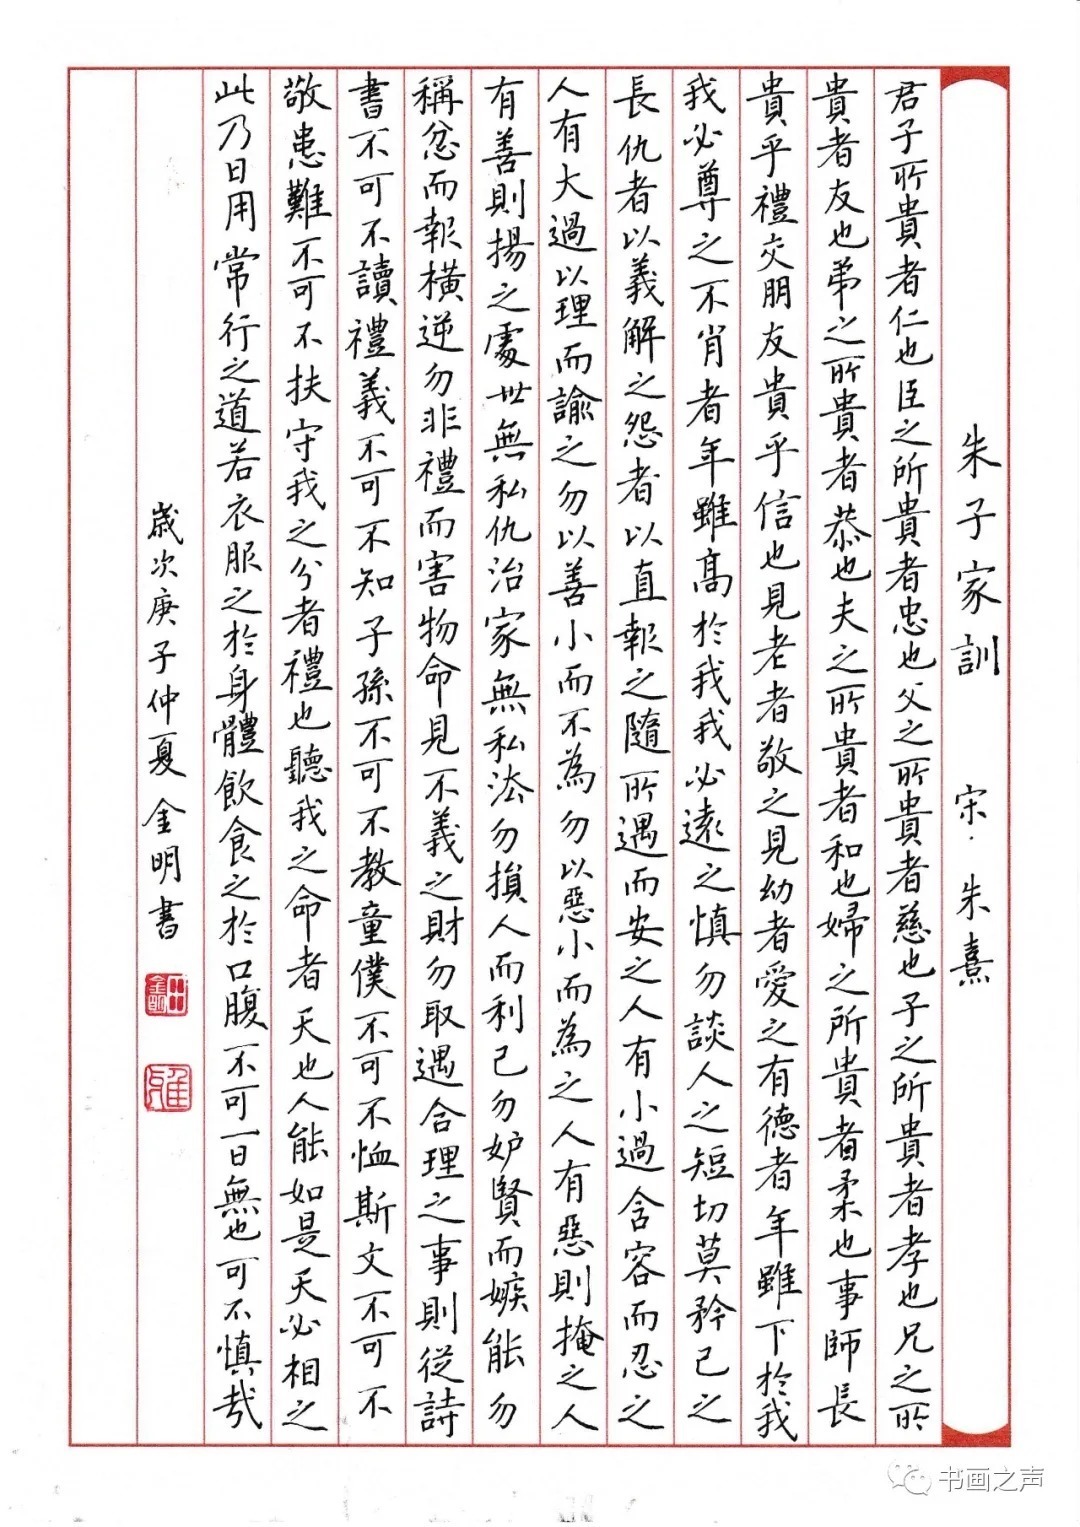 朱子家訓 宋·朱熹
君子所貴者仁也臣之所貴者忠也父之所貴者慈也子之所貴者孝也兄之所
貴者友也弟之所貴者恭也夫之所貴者和也婦之所貴者柔也事師長
貴乎禮交朋友貴乎信也見老者敬之見幼者愛之有德者年雖下於我
我必尊之不肖者年雖高於我我必遠之慎勿談人之短切莫矜己之
長仇者以義解之怨者以直報之隨所遇而安之人有小過含容而忍之
人有大過以理而諭之勿以善小而不為勿以惡小而為之人有惡則掩之人
有善則揚之處世無私仇治家無私法勿損人而利己勿妒賢而嫉能勿
稱忿而報橫逆勿非禮而害物命見不義之財勿取遇合理之事則從詩
書不可不讀禮義不可不知子孫不可不教童僕不可不恤斯文不可不
敬患難不可不扶守我之分者禮也聽我之命者天也人能如是天必相之
此乃日用常行之道若衣服之於身體飲食之於口腹不可一日無也可不慎哉
歲次庚子仲夏金明書
书画之声